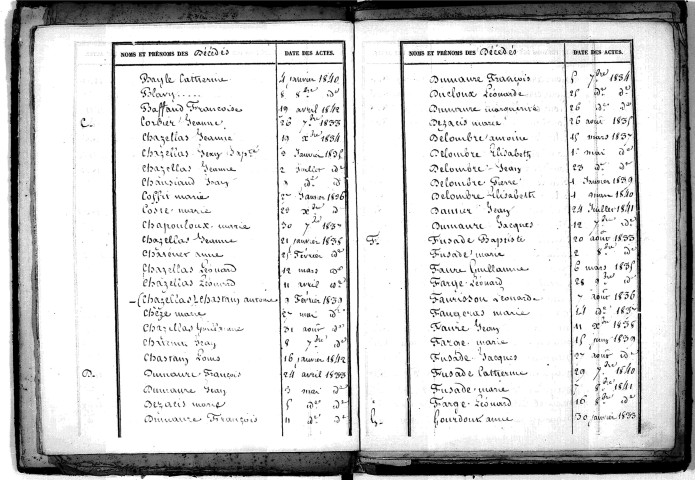 NOMS ET PRÉNOMS DES Décédés DATE DES ACTES.
Bayle Catherine 4 janvier 1840
Blavy..... 8 8bre do
Baffaud Francoise 19 avril 1842
C. Corbier Jeanne 26 7bre 1833
Chazellas Jeanne 19 xbre 1834
Chazellas Jean Bapte 2 Janvier 1835
Chazellas Jeanne 2 Juillet do
Chansiaud Jean do
Coffit marie 27 Janvier 1836
Coste marie 29 xbre do
Chapouloux marie 30 7bre 1837
Chazellas Jeanne 21 janvier 1838
anne 25 Fevrier do
Chazellas Léonard 12 mars do
Chazellas Léonard 11 avril do
(Chazellas) Chastain antoine 3 Février 1839
Chèze marie 27 mai do
Chazellas 31 aout do
Jean 8 7bre do
Chastain Louis 16 janvier 1842
D. Dumaure François 24 avril 1833
Dumaure Jean 3 mai do
Dezacis marie 5 do do
Dumaure François 11 do do
NOMS ET PRÉNOMS DES Décédés DATE DES ACTES.
Dumaure François 5 7bre 1834
Ducloux Léonarde 25 do do
Dumaure 26 do do
Dezacis marie 26 aout 1835
Delombre antoine 15 mars 1837
Delombre Elisabeth 1er mai do
Delombre Jean 23 do do
Delombre Pierre 1 Janvier 1839
Delombre Elisabeth 1840
Dameur Jean 24 Juillet 1841
Dumaure Jacques 12 7bre do
F. Fusade Baptiste 20 aout 1833
Fusade marie 2 8bre do
Faure Guillaume 6 mars 1835
Farge Léonard 28 9bre do
Faurisson Léonarde 7 aout 1836
Faugeras marie 24 do 1837
Faure Jean 11 xbre 1838
Farge marie 15 1839
Fusade Jacques 27 aout do
Fusade Catherine 29 7bre 1840
Fusade marie 8bre 1841
Farge Léonard 16 8bre do
G. Gourdoux anne 30 janvier 1833